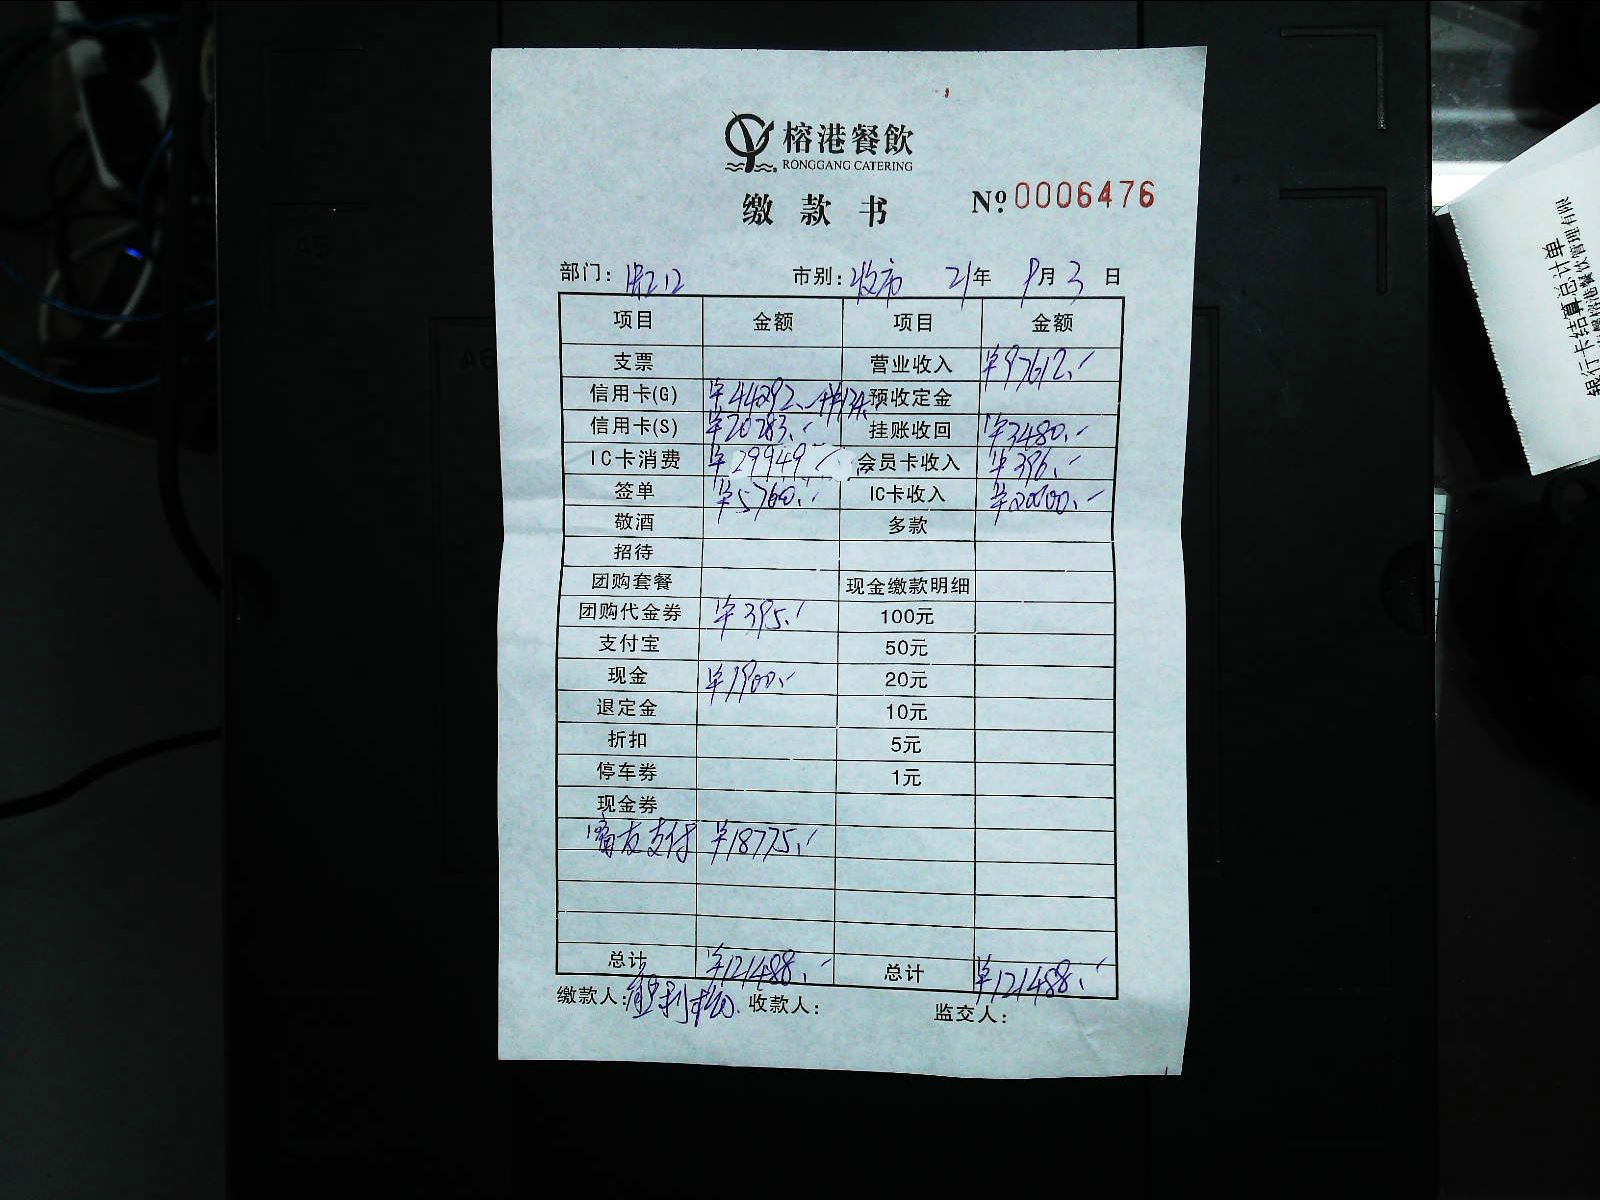 榕港餐飲
RONGGANG CATERING
缴款书 №0006476
部门: 市别:收市 21年 9月 3日
项目 金额 项目 金额
支票 营业收入 ¥97612.-
信用卡(G) ¥44292.- 预收定金
信用卡(S) ¥20283.- 挂账收回 ¥3480.-
IC卡消费 ¥29949 会员卡收入 ¥396.-
签单 ¥5760.- IC卡收入 ¥20000.-
敬酒 多款
招待
团购套餐 现金缴款明细
团购代金券 ¥395.-
100元
支付宝 50元
现金 ¥1900.- 20元
退定金 10元
折扣 5元
停车券 1元
现金券
支付 ¥18775.-
总计 ¥121488.- 总计 ¥121488.-
缴款人: 收款人: 监交人:
银行卡结算总计单
榕港餐饮管理有限